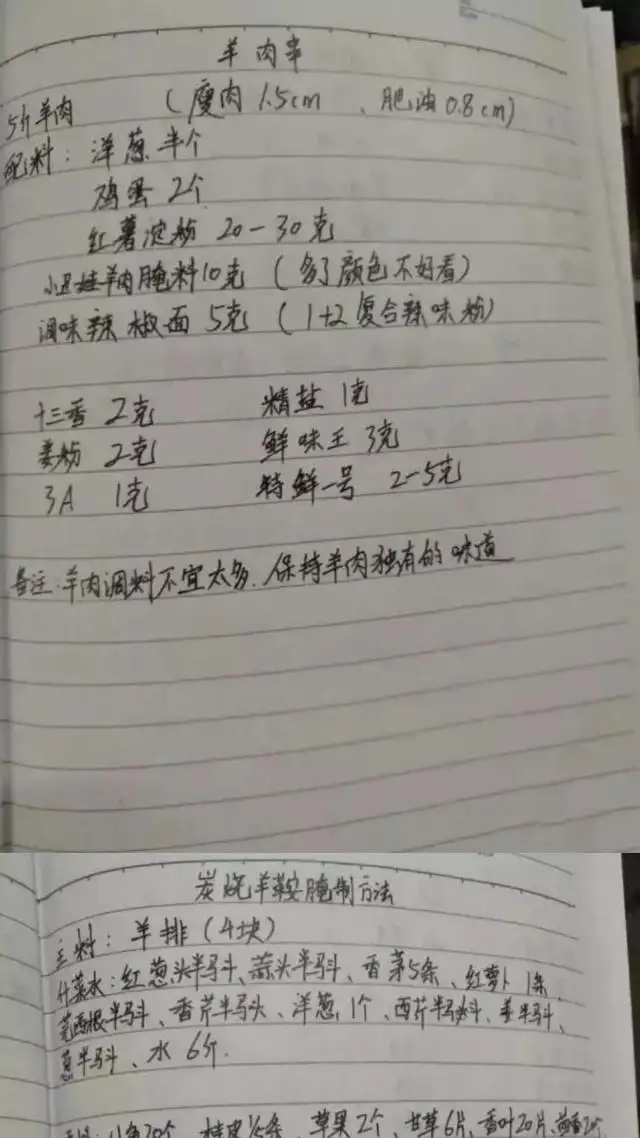 羊肉串
5斤羊肉 (瘦肉1.5cm、肥油0.8cm)
配料: 洋葱半个
鸡蛋2个
红薯淀粉 20-30克
羊肉腌料10克 (多了颜色不好看)
调味辣椒面 5克 (1+2复合辣味粉)
十三香 2克 精盐 1克
姜粉 2克 鲜味王 3克
3A 1克 特鲜一号 2-5克
备注:羊肉调料不宜太多.保持羊肉独有的味道
炭烧羊鞍腌制方法
主料: 羊排(4块)
什菜水:红葱头半马斗、蒜头半马斗、香茅5条、红萝卜1条、
芫西根半马斗、香芹半马头、洋葱1个、西芹半马斗、姜半马斗、
葱半马斗、水 6斤.
八角20个、桂皮½条、草果2个、甘草6片、香叶20片、茴香